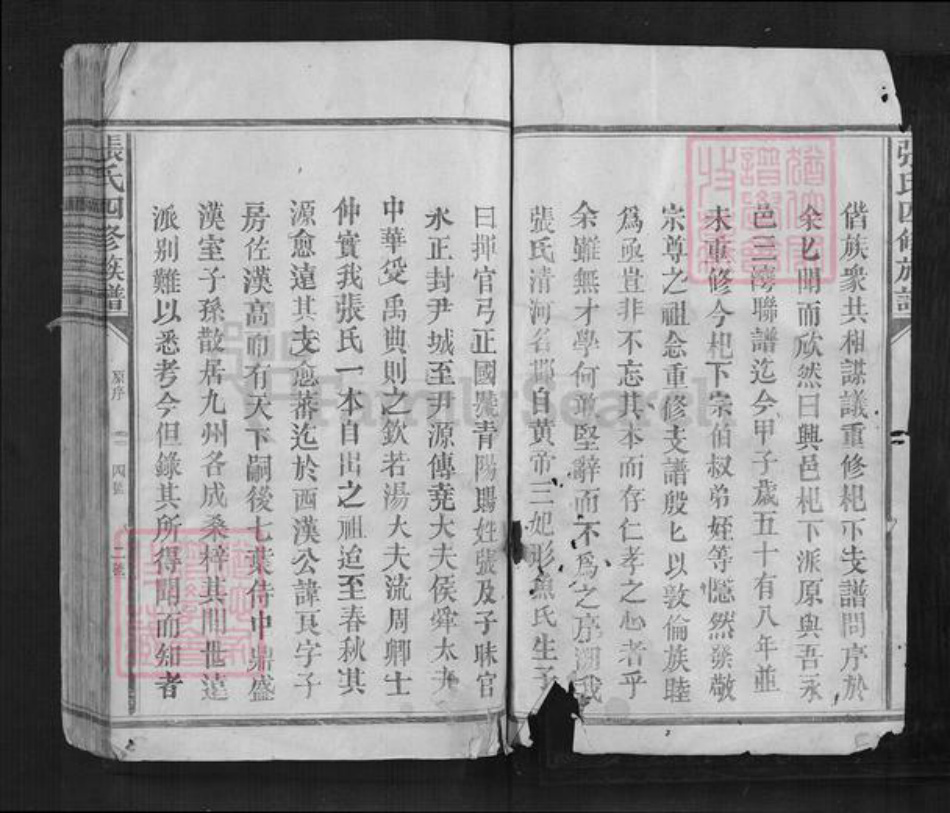 偕族衆共相謀議重修杞下支譜問序於
余匕聞而欣然曰興邑杞下派原與吾永
邑三灣聯譜迄今甲子歲五十有八年並
未重修今杞下宗伯叔弟姪等慨然發敬
宗尊之祖念重修支譜殷匕以敦倫族睦
爲亟豈非不忘其本而存仁孝之心者乎
余雖無才學何敢堅辭而不爲之序溯我
張氏清河名郡自黄帝三妃彤魚氏生子
曰揮官弓正國號青陽賜姓張及子昧官
永正封尹城至尹源傳堯大夫侯舜大夫
中華受禹典則之欽若湯大夫流周卿士
仲實我張氏一本自出之祖迨至春秋其
源愈遠其支愈蕃迄於西漢公諱良字子
房佐漢高而有天下嗣後七葉侍中鼎盛
漢室子孫散居九州各成桑梓其間世遠
派别難以悉考今但錄其所得聞而知者
張氏四修族譜
原序
四號
二號
張氏四修族譜
FamilySearch